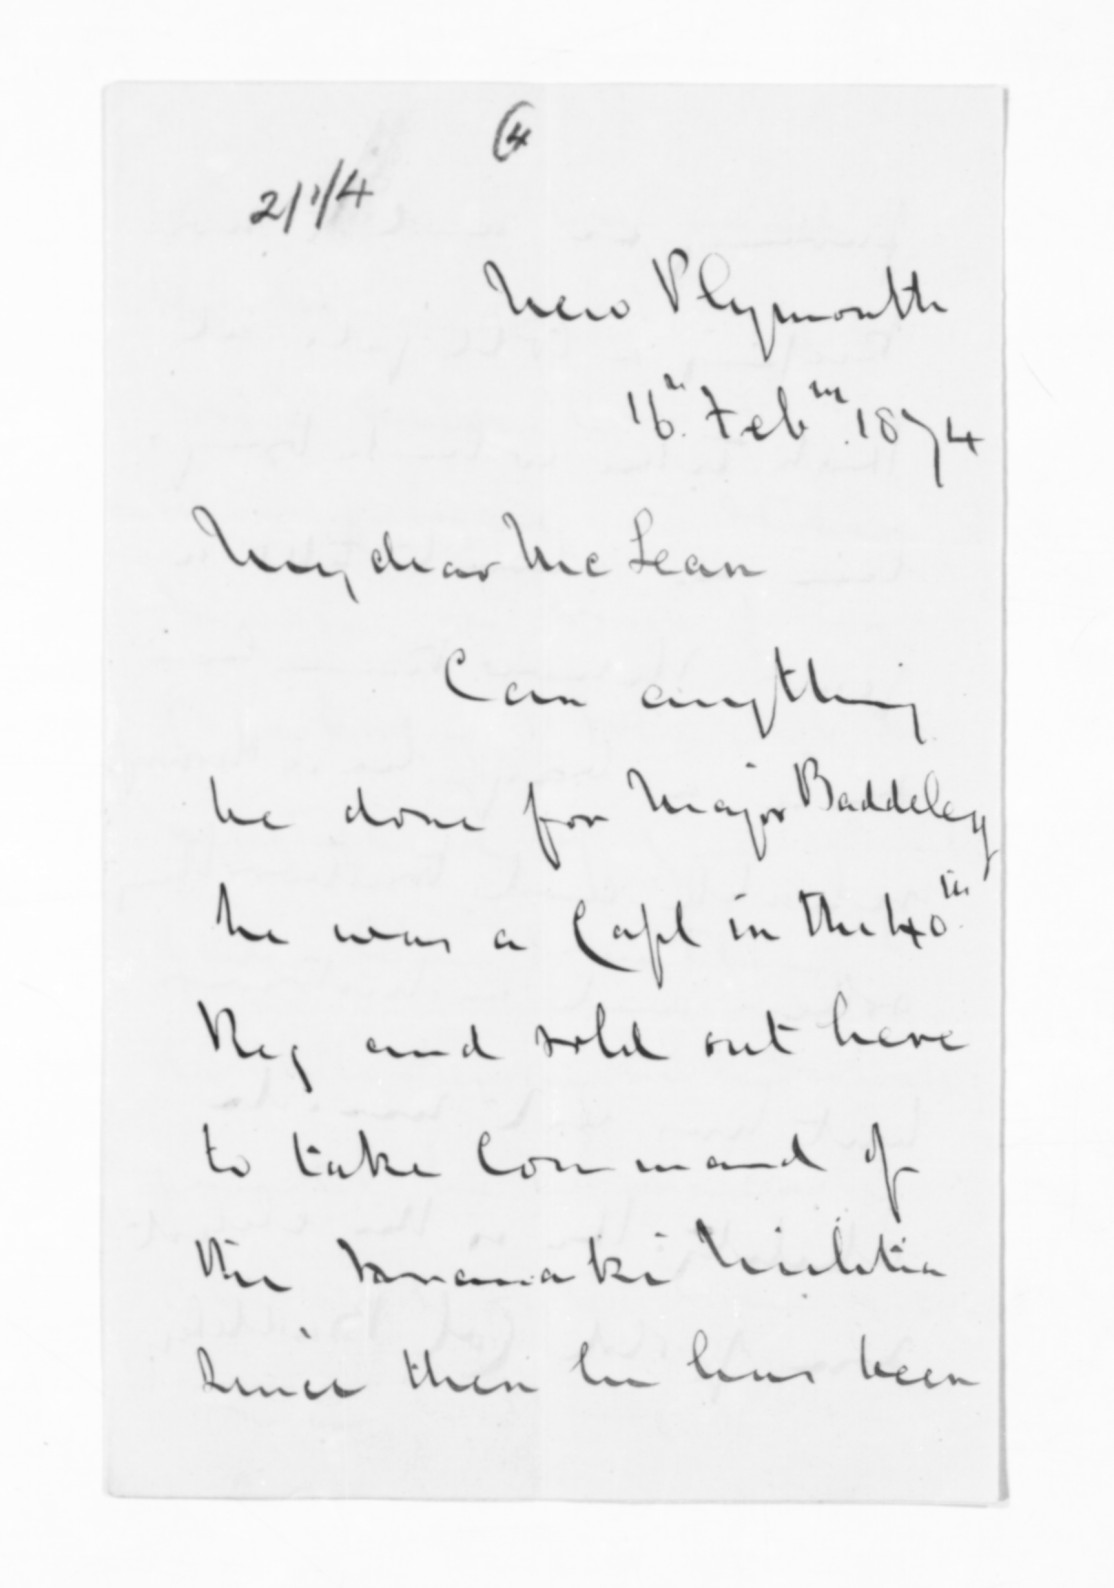 (4
2/1/4
New Plymouth
16th Febry 1874
My dear McLean
Can anything
be done for Major Baddeley
he was a Capt in the 40th
Reg and sold out here
to take Command of
the Taranaki Militia
Since then he has been